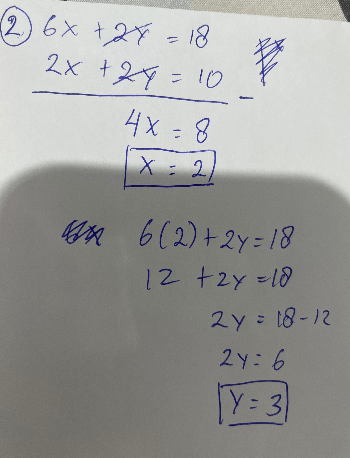 2 6x + 2y = 18
2x + 2y = 10
-
4x = 8
x = 2
6(2) + 2y = 18
12 + 2y = 18
2y = 18 - 12
2y = 6
y = 3